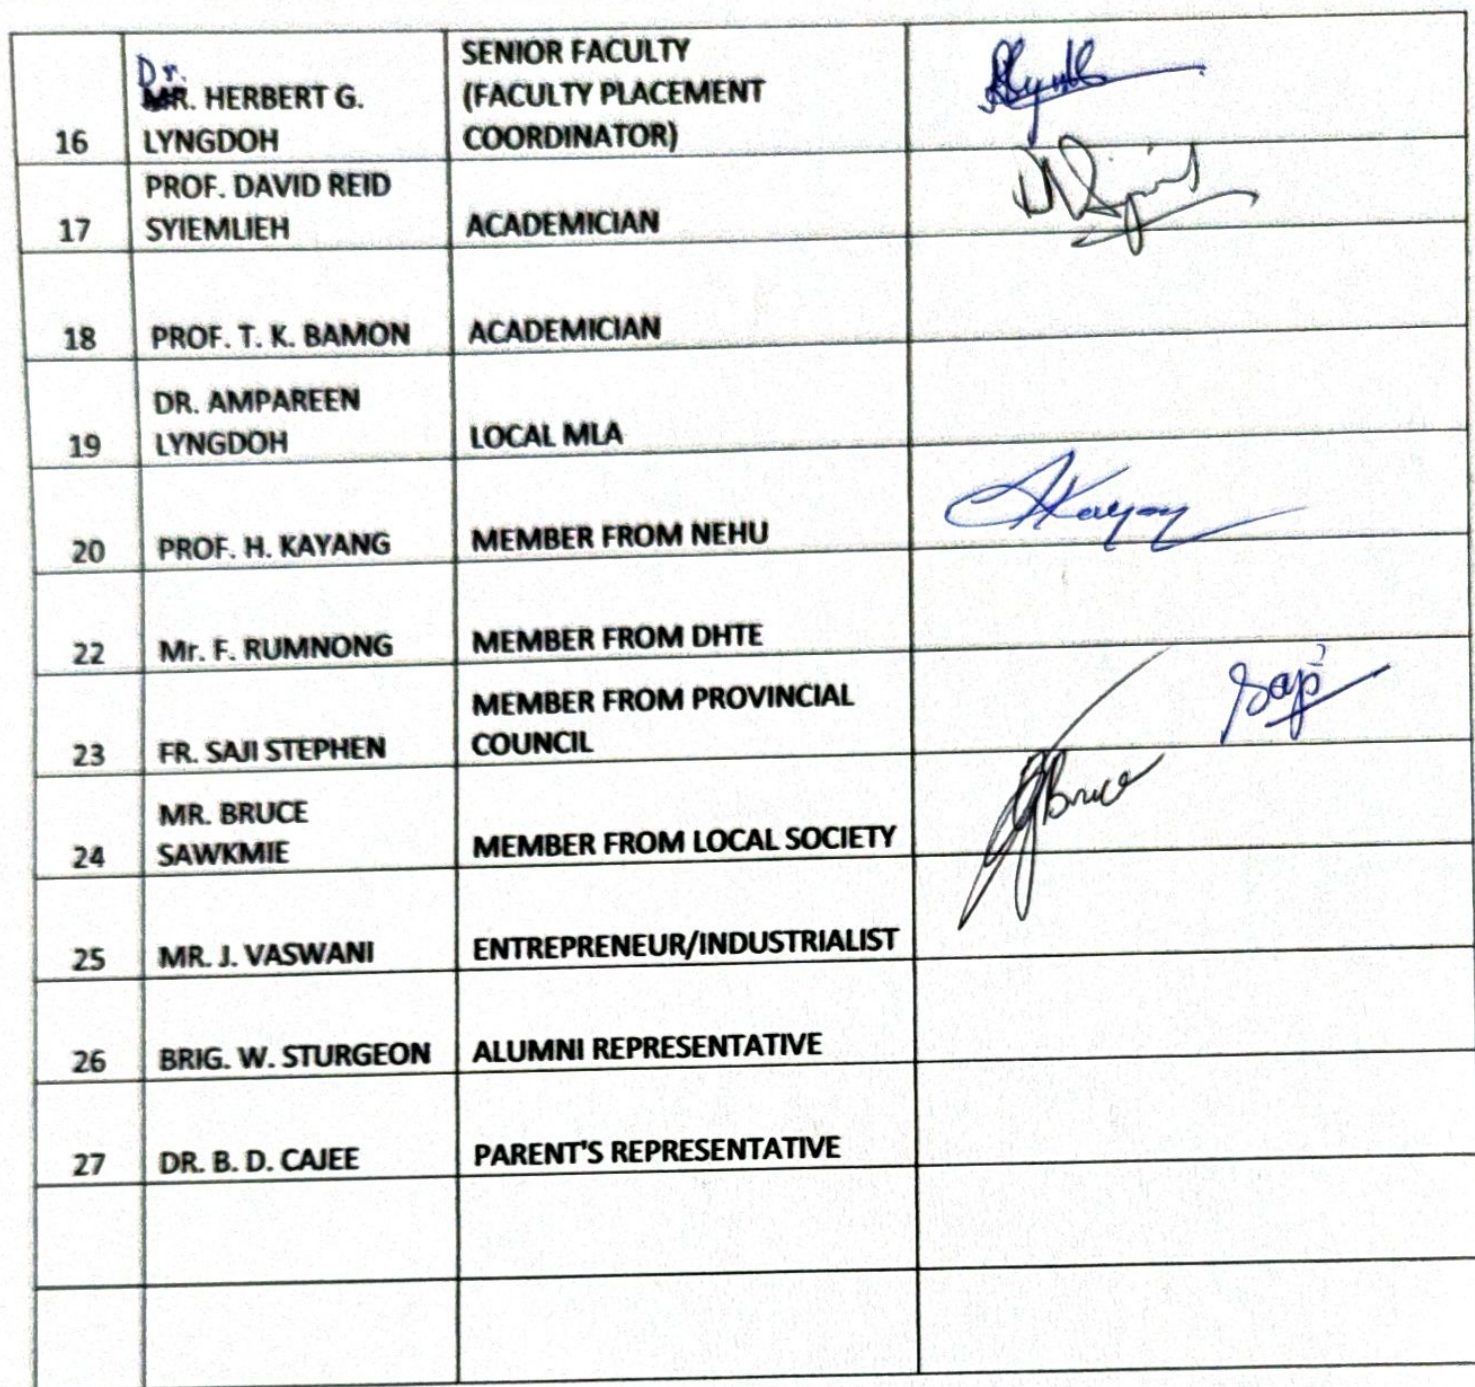 SENIOR FACULTY
Dr.
MR. HERBERT G.
(FACULTY PLACEMENT
16
LYNGDOH
COORDINATOR)
PROF. DAVID REID
17
SYIEMLIEH
ACADEMICIAN
18
PROF. T. K. BAMON
ACADEMICIAN
DR. AMPAREEN
19
LYNGDOH
LOCAL MLA
20
PROF. H. KAYANG
MEMBER FROM NEHU
HKayang
22
Mr. F. RUMNONG
MEMBER FROM DHTE
MEMBER FROM PROVINCIAL
23
FR. SAJI STEPHEN
COUNCIL
Saji
MR. BRUCE
24
SAWKMIE
MEMBER FROM LOCAL SOCIETY
Bruce
25
MR. J. VASWANI
ENTREPRENEUR/INDUSTRIALIST
26
BRIG. W. STURGEON
ALUMNI REPRESENTATIVE
27
DR. B. D. CAJEE
PARENT'S REPRESENTATIVE